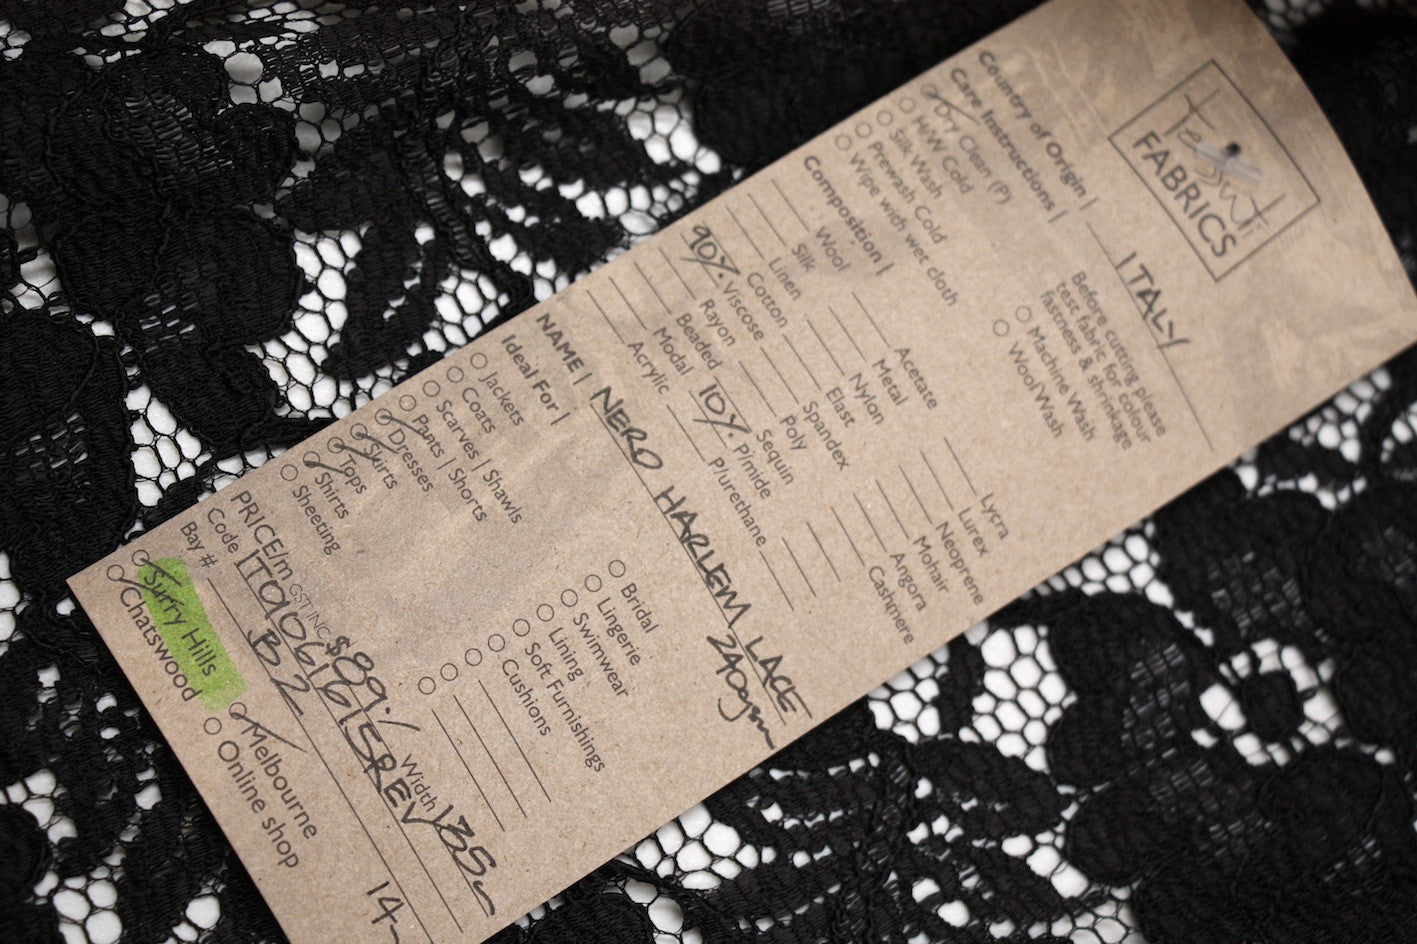 Tessuti
FABRICS
Country of Origin | ITALY
Care Instructions |
Dry Clean (P)
H/W Cold
Silk Wash
Prewash Cold
Wipe with wet cloth
Before cutting please
test fabric for colour
fastness & shrinkage
Machine Wash
Wool Wash
Composition |
Wool
Silk
Linen
Cotton
90% Viscose
Rayon
Beaded
Modal
Acrylic
Acetate
Metal
Nylon
Elast
Spandex
Poly
Sequin
10% P/mide
P/urethane
Lycra
Lurex
Neoprene
Mohair
Angora
Cashmere
NAME | NERO HARLEM LACE
240gsm
Ideal For |
Jackets
Coats
Scarves | Shawls
Pants | Shorts
Dresses
Skirts
Tops
Shirts
Sheeting
Bridal
Lingerie
Swimwear
Lining
Soft Furnishings
Cushions
PRICE/m GST INC $89.- Width 135
Code
Bay # B2
14-
Surry Hills
Chatswood
Melbourne
Online shop